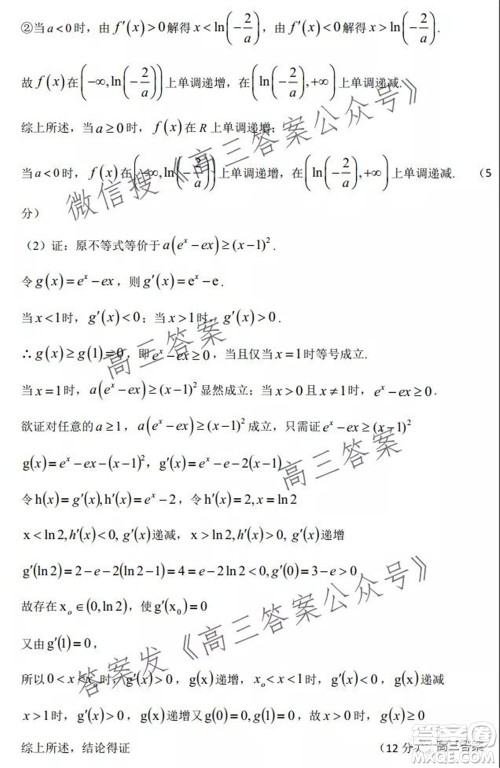 ②当 a<0 时，由 f′(x)>0 解得 x<ln(-2/a)，由 f′(x)<0 解得 x>ln(-2/a).
故 f(x) 在 (-∞,ln(-2/a)) 上单调递增，在 (ln(-2/a),+∞) 上单调递减.
综上所述，当 a≥0 时，f(x) 在 R 上单调递增；
当 a<0 时，f(x) 在 (-∞,ln(-2/a)) 上单调递增，在 (ln(-2/a),+∞) 上单调递减. （5
分）
（2）证：原不等式等价于 a(eˣ-ex)≥(x-1)².
令 g(x)=eˣ-ex，则 g′(x)=eˣ-e.
当 x<1 时，g′(x)<0；当 x>1 时，g′(x)>0.
∴ g(x)≥g(1)=0，即 eˣ-ex≥0，当且仅当 x=1 时等号成立.
当 x=1 时，a(eˣ-ex)≥(x-1)² 显然成立；当 x>0 且 x≠1 时，eˣ-ex>0.
欲证对任意的 a≥1，a(eˣ-ex)≥(x-1)² 成立，只需证 eˣ-ex≥(x-1)²
g(x)=eˣ-ex-(x-1)²，g′(x)=eˣ-e-2(x-1)
令 h(x)=g′(x),h′(x)=eˣ-2，令 h′(x)=0,x=ln2
x<ln2,h′(x)<0,g′(x)递减，x>ln2,h′(x)>0,g′(x)递增
g′(ln2)=2-e-2(ln2-1)=4-e-2ln2<0,g′(0)=3-e>0,
故存在 xₒ∈(0,ln2)，使 g′(x₀)=0
又由 g′(1)=0，
所以 0<x<xₒ 时，g′(x)>0，g(x)递增，xₒ<x<1 时，g′(x)<0，g(x)递减
x>1 时，g′(x)>0，g(x)递增又 g(0)=0,g(1)=0，故 x>0 时，g(x)≥0
综上所述，结论得证 （12 分） 高三答案
微信搜《高三答案公众号》
高三答案
高三答案
答案发《高三答案公众号》